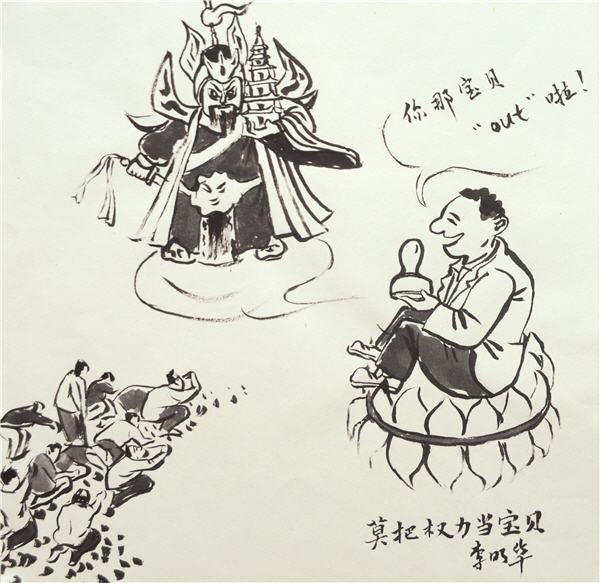 你那宝贝
“out”啦！
莫把权力当宝贝
李明华